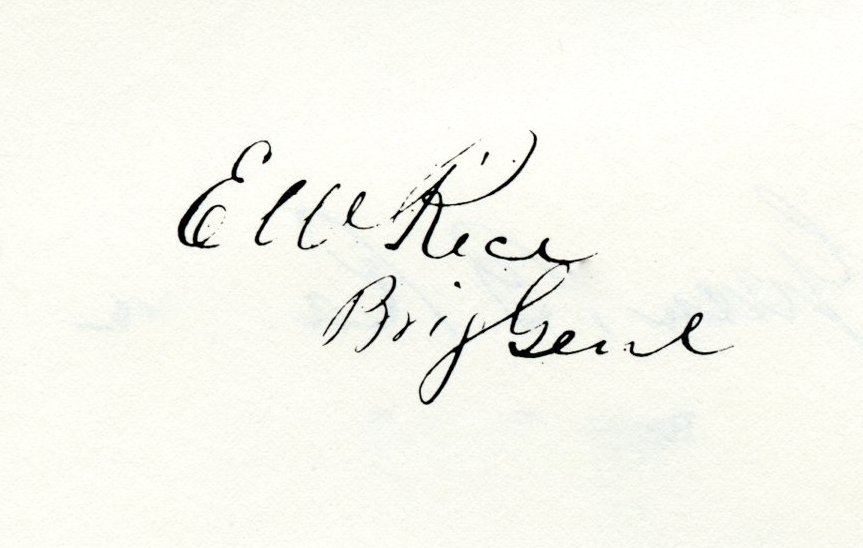 E W Rice
Brig Genl